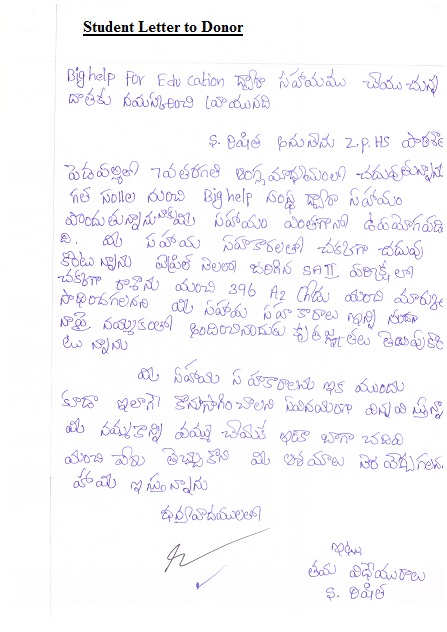 Student Letter to Donor
Big help For Education ద్వారా సహాయము చేయుచున్న
దాతకు నమస్కరించి వ్రాయునది
S. రిషిత అను నేను Z.P.HS పాఠశాల
పెదపల్లిలో 7వ తరగతి ఆంగ్ల మాధ్యమంలో చదువుతున్నాను
గత నుంచి Big help సంస్థ ద్వారా సహాయం
పొందుతున్నాను మీ సహాయం ఎంతగానో ఉపయోగపడు
ది. మీ సహాయ సహకారాలతో చక్కగా చదువు
కొంటున్నాను ఏప్రిల్ నెలలో జరిగిన SAII పరీక్షలో
చక్కగా రాశాను మంచి 396 A2 గ్రేడు మంచి మార్కులు
సాధించగలిగితిని మీ సహాయ సహకారాలు
నాపై నమ్మకంతో అందించినందుకు కృతజ్ఞతలు తెలుపుకొం
టున్నాను
మీ సహాయ సహకారాలను ఇక ముందు
కూడా ఇలాగే కొనసాగించాలని విన్నవిస్తున్నా
మీ నమ్మకాన్ని వమ్ము చేయక ఇంకా బాగా చదివి
మంచి పేరు తెచ్చుకొని మీ ఆశయాలు నెరవేర్చగలనని
హామీ ఇస్తున్నాను
ధన్యవాదములతో
ఇట్లు
తమ విధేయురాలు
S. రిషిత